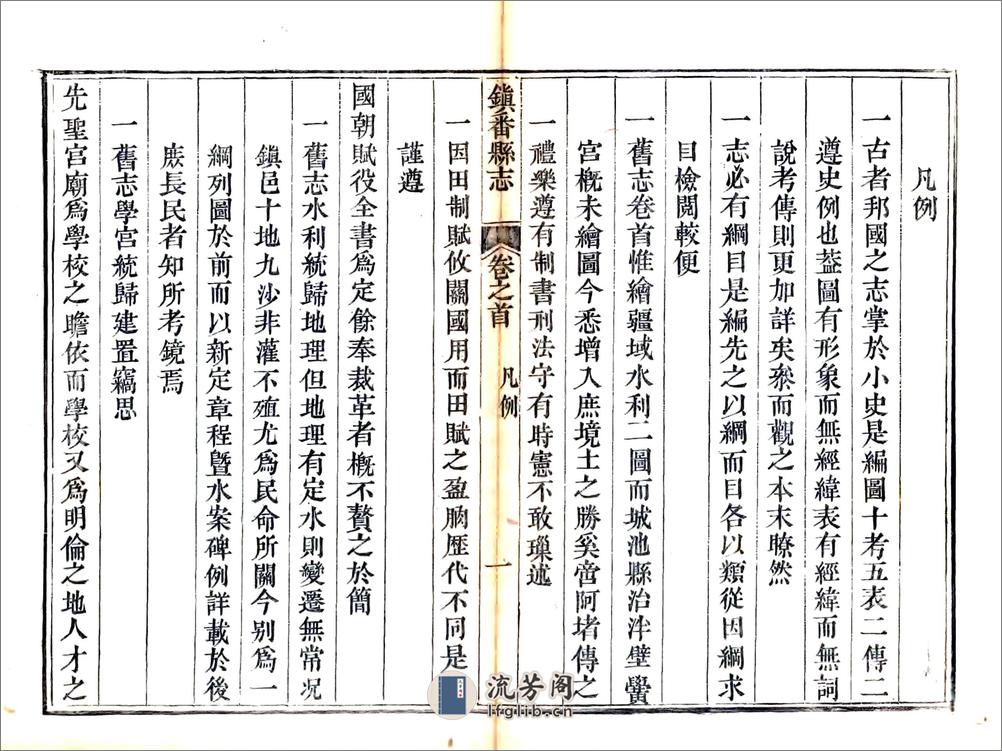 凡例
一古者邦國之志掌於小史是編圖十考五表二傳二
遵史例也葢圖有形象而無經緯表有經緯而無詞
說考傳則更加詳矣衆而觀之本末瞭然
一志必有綱目是編先之以綱而目各以類從因綱求
目檢閱較便
一舊志卷首惟繪疆域水利二圖而城池縣治泮壁黌
宮槪未繪圖今悉增入庶境土之勝奚啻阿堵傳之
一禮樂遵有制書刑法守有時憲不敢瑣述
鎭番縣志
卷之首
凡例
一
一因田制賦攸關國用而田賦之盈朒歷代不同是
謹遵
國朝賦役全書爲定餘奉裁革者槪不贅之於簡
一舊志水利統歸地理但地理有定水則變遷無常况
鎭邑十地九沙非灌不殖尤爲民命所關今别爲一
綱列圖於前而以新定章程曁水案碑例詳載於後
庶長民者知所考鏡焉
一舊志學宮統歸建置竊思
先聖宮廟爲學校之瞻依而學校又爲明倫之地人才之
流芳阁
lfglib.cn